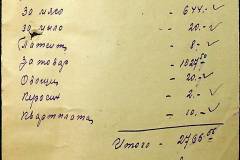 За мясо - 644.-
за мыло - 20.-
Патент - 8.-
За товар - 1827 50
Овощи - 20.-
Керосин - 2.-
Квартплата - 10.-
Итого - 2766